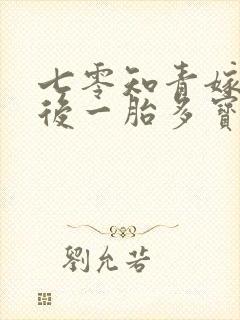 七零知青嫁
後一胎多寶
劉允若